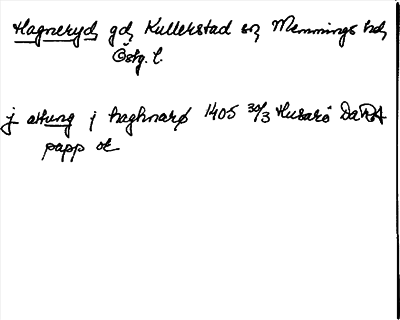 Hagneryd gd Kullerstad sn Memmings hd
Östg. l.
j attung j haghnarø 1405 30/3 Husarö Da RA
papp or